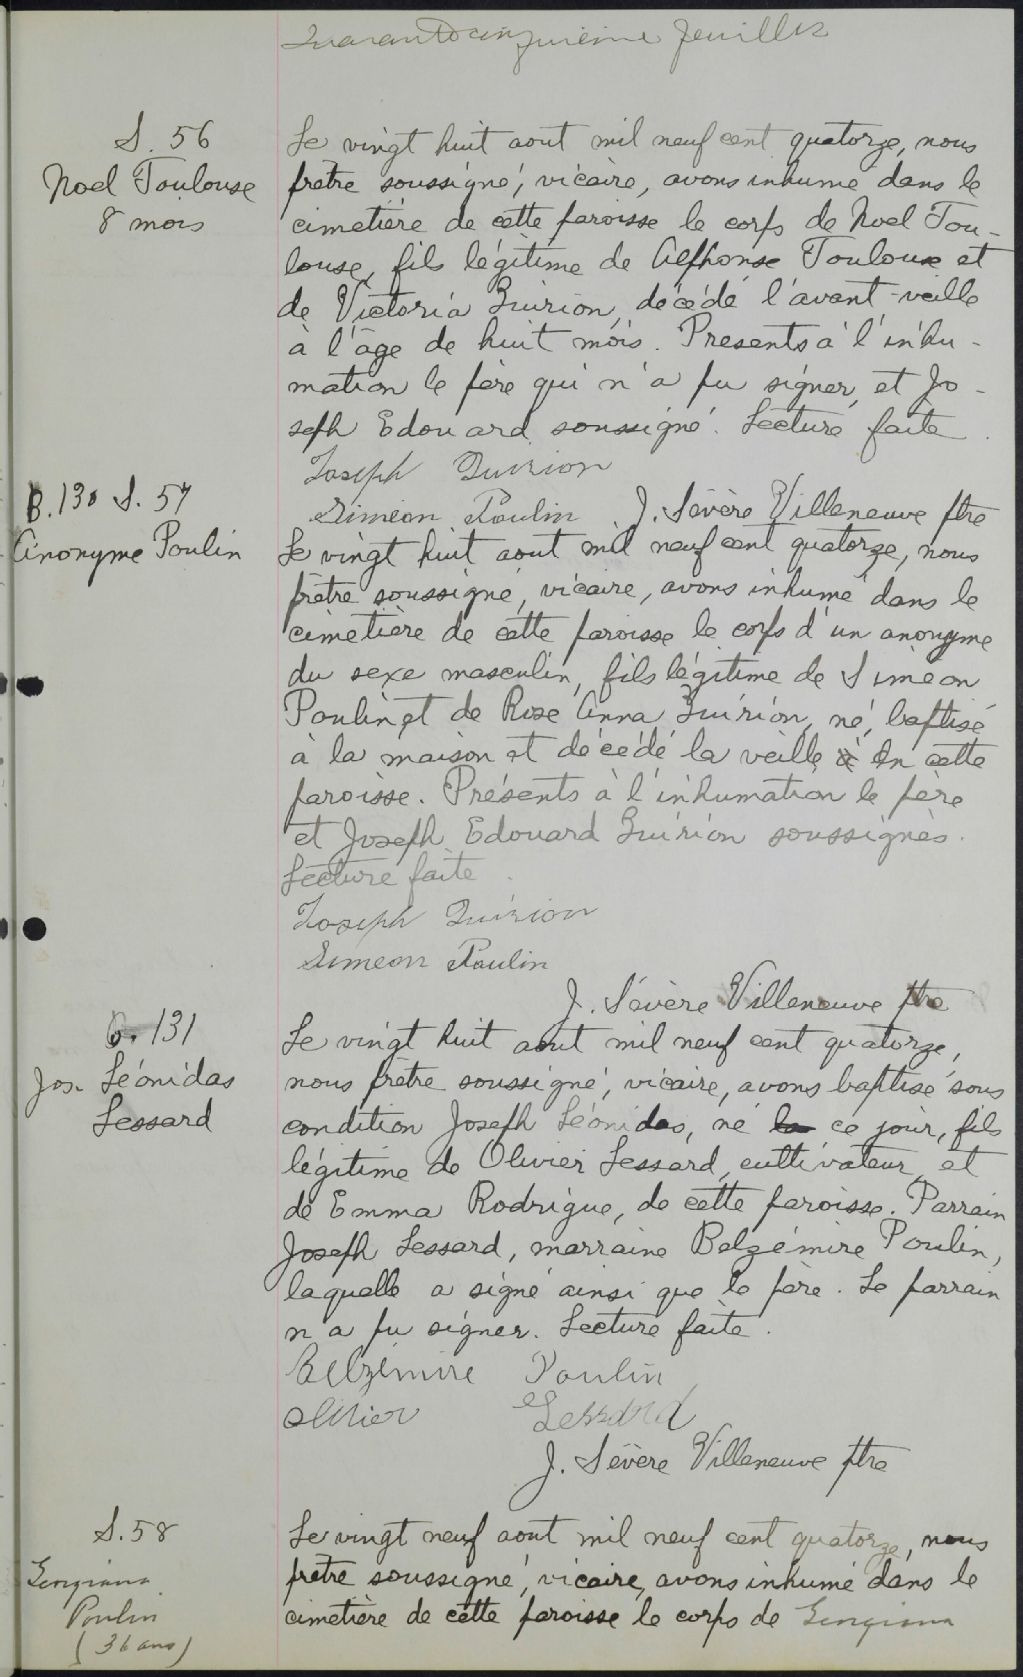 Quarante cinquième feuillet
S. 56
Noel Toulouse
8 mois
Le vingt huit aout mil neuf cent quatorze, nous
prêtre soussigné, vicaire, avons inhumé dans le
cimetière de cette paroisse le corps de Noel Tou-
louse, fils légitime de Alphonse Toulouse et
de Victoria Quirion, décédé l'avant-veille
à l'âge de huit mois. Presents à l'inhu-
mation le père qui n'a pu signer, et Jo-
seph Edouard soussigné. Lecture faite.
Joseph Quirion
Simeon Poulin J. Sévère Villeneuve ptre
B. 130 S. 57
Anonyme Poulin
Le vingt huit aout mil neuf cent quatorze, nous
prêtre soussigné, vicaire, avons inhumé dans le
cimetière de cette paroisse le corps d'un anonyme
du sexe masculin, fils légitime de Siméon
Poulin et de Rose Anna Quirion, né, baptisé
à la maison et décédé la veille à en cette
paroisse. Présents à l'inhumation le père
et Joseph Edouard Quirion soussignés.
Lecture faite.
Joseph Quirion
Simeon Poulin
J. Sévère Villeneuve ptre
B. 131
Jos. Léonidas
Lessard
Le vingt huit aout mil neuf cent quatorze,
nous prêtre soussigné, vicaire, avons baptisé sous
condition Joseph Léonidas, né la ce jour, fils
légitime de Olivier Lessard, cultivateur, et
de Emma Rodrigue, de cette paroisse. Parrain
Joseph Lessard, marraine Belzémire Poulin,
laquelle a signé ainsi que le père. Le parrain
n'a pu signer. Lecture faite.
Belzémire Poulin
Olivier Lessard
J. Sévère Villeneuve ptre
S. 58
Georgiana
Poulin
(36 ans)
Le vingt neuf aout mil neuf cent quatorze, nous
prêtre soussigné, vicaire, avons inhumé dans le
cimetière de cette paroisse le corps de Georgiana